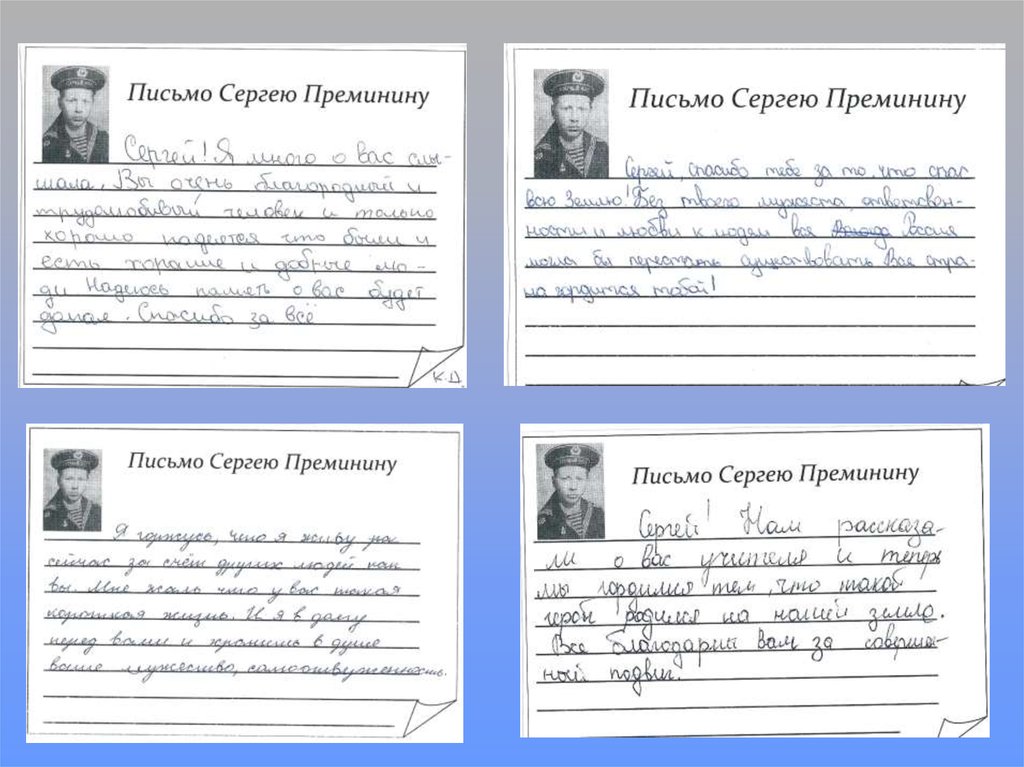 Письмо Сергею Преминину
Сергей! Я много о вас слы-
шала. Вы очень благородный и
трудолюбивый человек и только
хорошо надеятся что были и
есть хорошие и добрые лю-
ди Надеюсь память о вас будет
долгая. Спасибо за всё
К.Д
Письмо Сергею Преминину
Сергей, спасибо тебе за то, что спас
всю Землю! Без твоего мужеста, ответсвен-
ности и любви к людям вся Россия
могла бы перестать существовать Вся стра-
на гордится тобой!
Письмо Сергею Преминину
Я горжусь, что я живу
сейчас за счёт других людей как
вы. Мне жаль что у вас такая
короткая жизнь. И я в долгу
перед вами и хранить в душе
ваше мужество, самоотверженность.
Письмо Сергею Преминину
Сергей! Нам рассказа-
ли о вас учителя и теперь
мы гордимся тем, что такой
герой родился на нашей земле.
Все благодарны Вам за соверше-
ный подвиг.